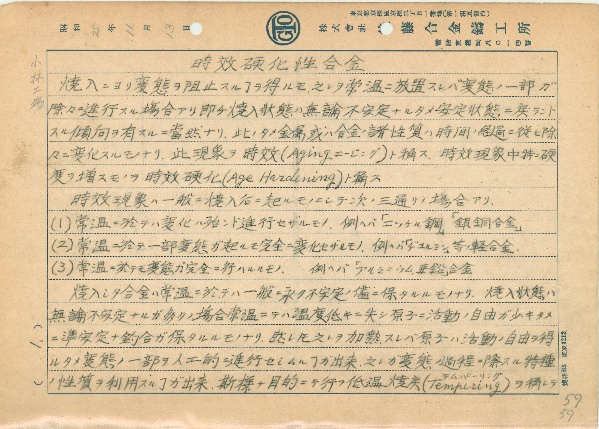 昭和 25 年 11 月 13 日
GTO
東京都京橋区京橋二丁目一番地(第一相互館内)
株式会社 藤合金鋳工所
電話京橋八〇一四番
小林工場
時效硬化性合金
焼入ニヨリ変態ヲ阻止スルヿヲ得ルモ之レヲ常温ニ放置スレバ変態ノ一部ガ
除々ニ進行スル場合アリ即チ焼入状態ハ無論不安定ナルタメ安定状態ニ戻ラント
スル傾向ヲ有スルハ当然ナリ、此ノタメ金属或ハ合金ノ諸性質ハ時間ノ経過ニ従ヒ除
々ニ変化スルモノナリ、此現象ヲ時效(Agingエージング)ト稱ス、時效現象中特ニ硬
度ヲ増スモノヲ時效硬化(Age Hardining)ト稱ス
時效現象ハ一般ニ焼入后ニ起ルモノニシテ次ノ三通リノ場合アリ、
(1) 常温ニ於テハ変化ハ殆ンド進行セザルモノ、例ヘバ「ニッケル鋼」「銀銅合金」
(2) 常温ニ於テ一部変態ガ起ルモ完全ニ変化セザルモノ、例ヘバ「ヂュラルミン」等ノ軽合金
(3) 常温ニ於テモ変態ガ完全ニ行ハルルモノ、 例ヘバ「アルミニウム」亜鉛合金
焼入シタ合金ハ常温ニ於テハ一般ニ永ク不安定ノ儘ニ保タルルモノナリ、焼入状態ハ
無論不安定ナルガ多クノ場合常温ニテハ温度低キニ失シ原子ニ活動ノ自由ガ少キタメ
ニ準安定ノ釣合ガ保タルルモノナリ、然レ圧之レヲ加熱スレバ原子ハ活動ノ自由ヲ得
ルタメ変態ノ一部ヲ人工的ニ進行セシムルヿガ出来、之レガ変態ノ過程ニ際スル特種
ノ性質ヲ利用スルヿガ出来、斯様ナ目的ニテ行フ低温焼戻(Tempering テムパーリング)ヲ稱シテ
(1.)
59
59